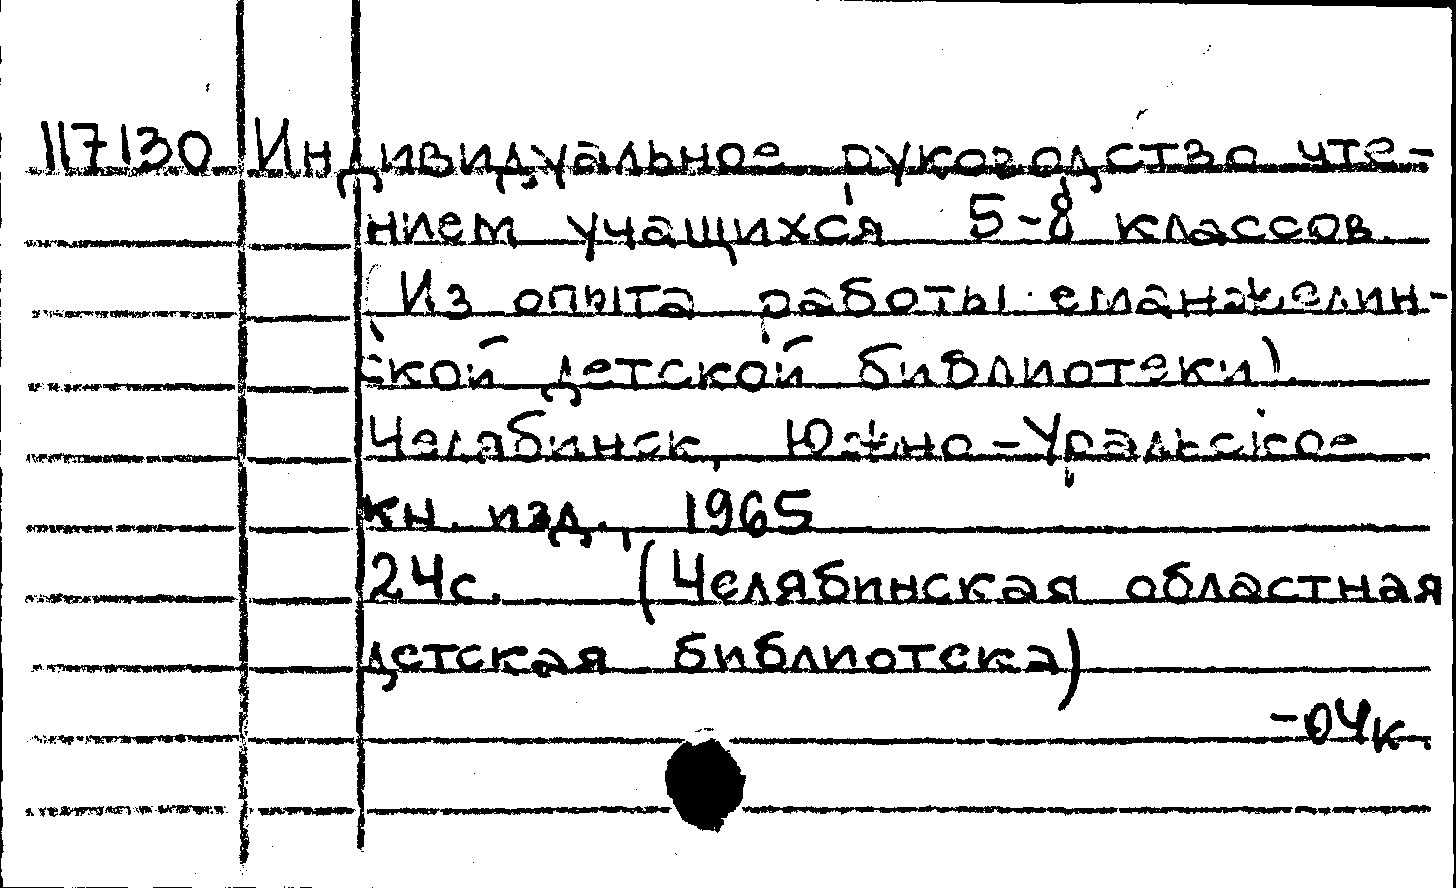 117130 Индивидуальное руководство чте-
нием учащихся 5-8 классов.
(Из опыта работы еманжелин-
ской детской библиотеки).
Челябинск, Южно-Уральское
кн. изд., 1965
24с. (Челябинская областная
детская библиотека)
-04к.